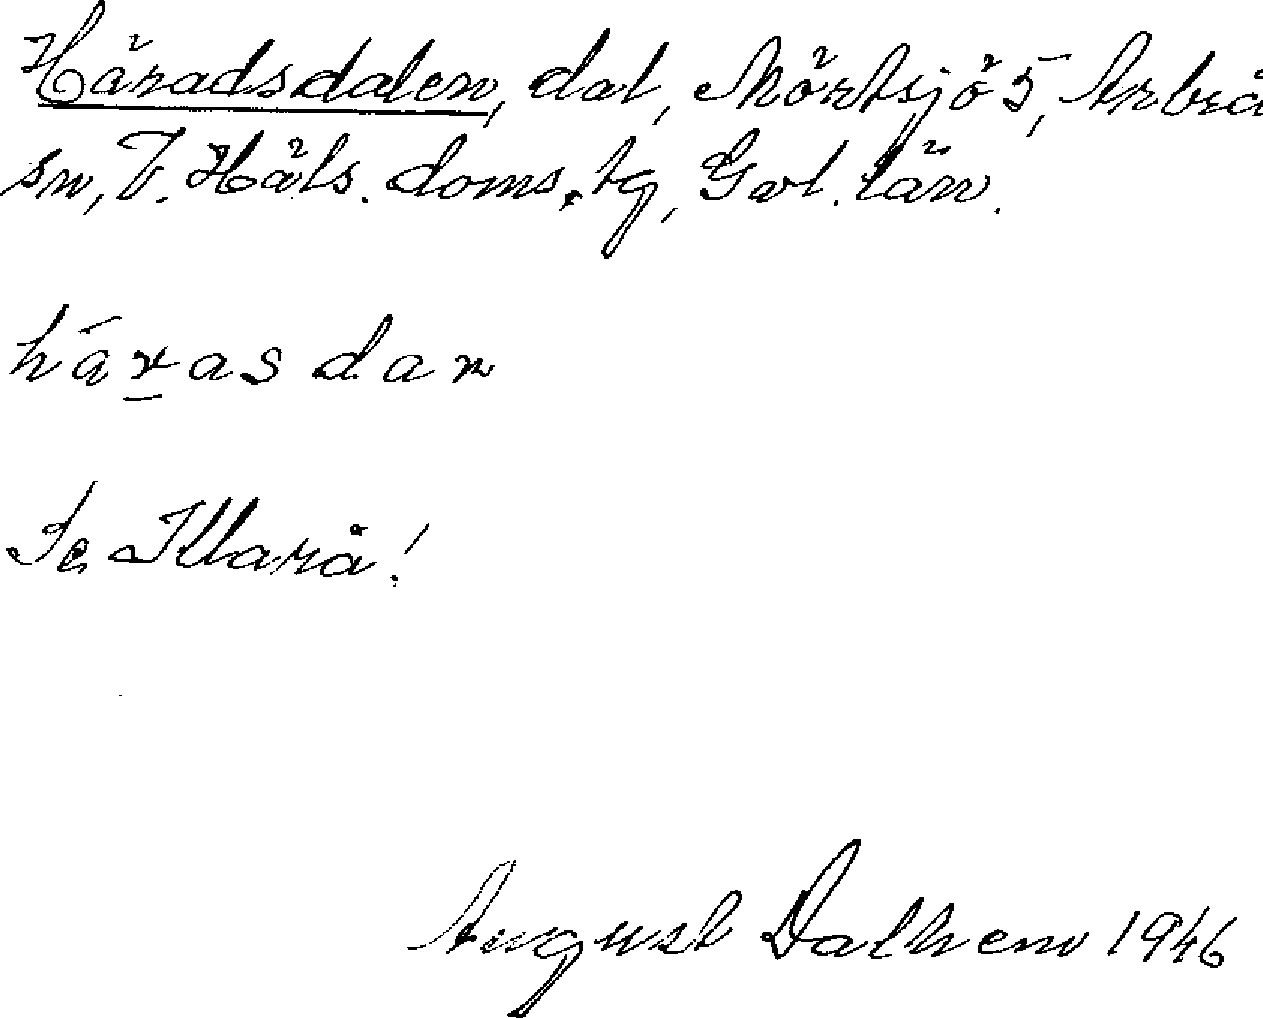 Häradsdalen, dal, Mörtsjö 5, Arbrå
sn, V. Häls. doms. tg, Gvl. län.
hárasdan
Se Klarå!
August Dalhem 1946